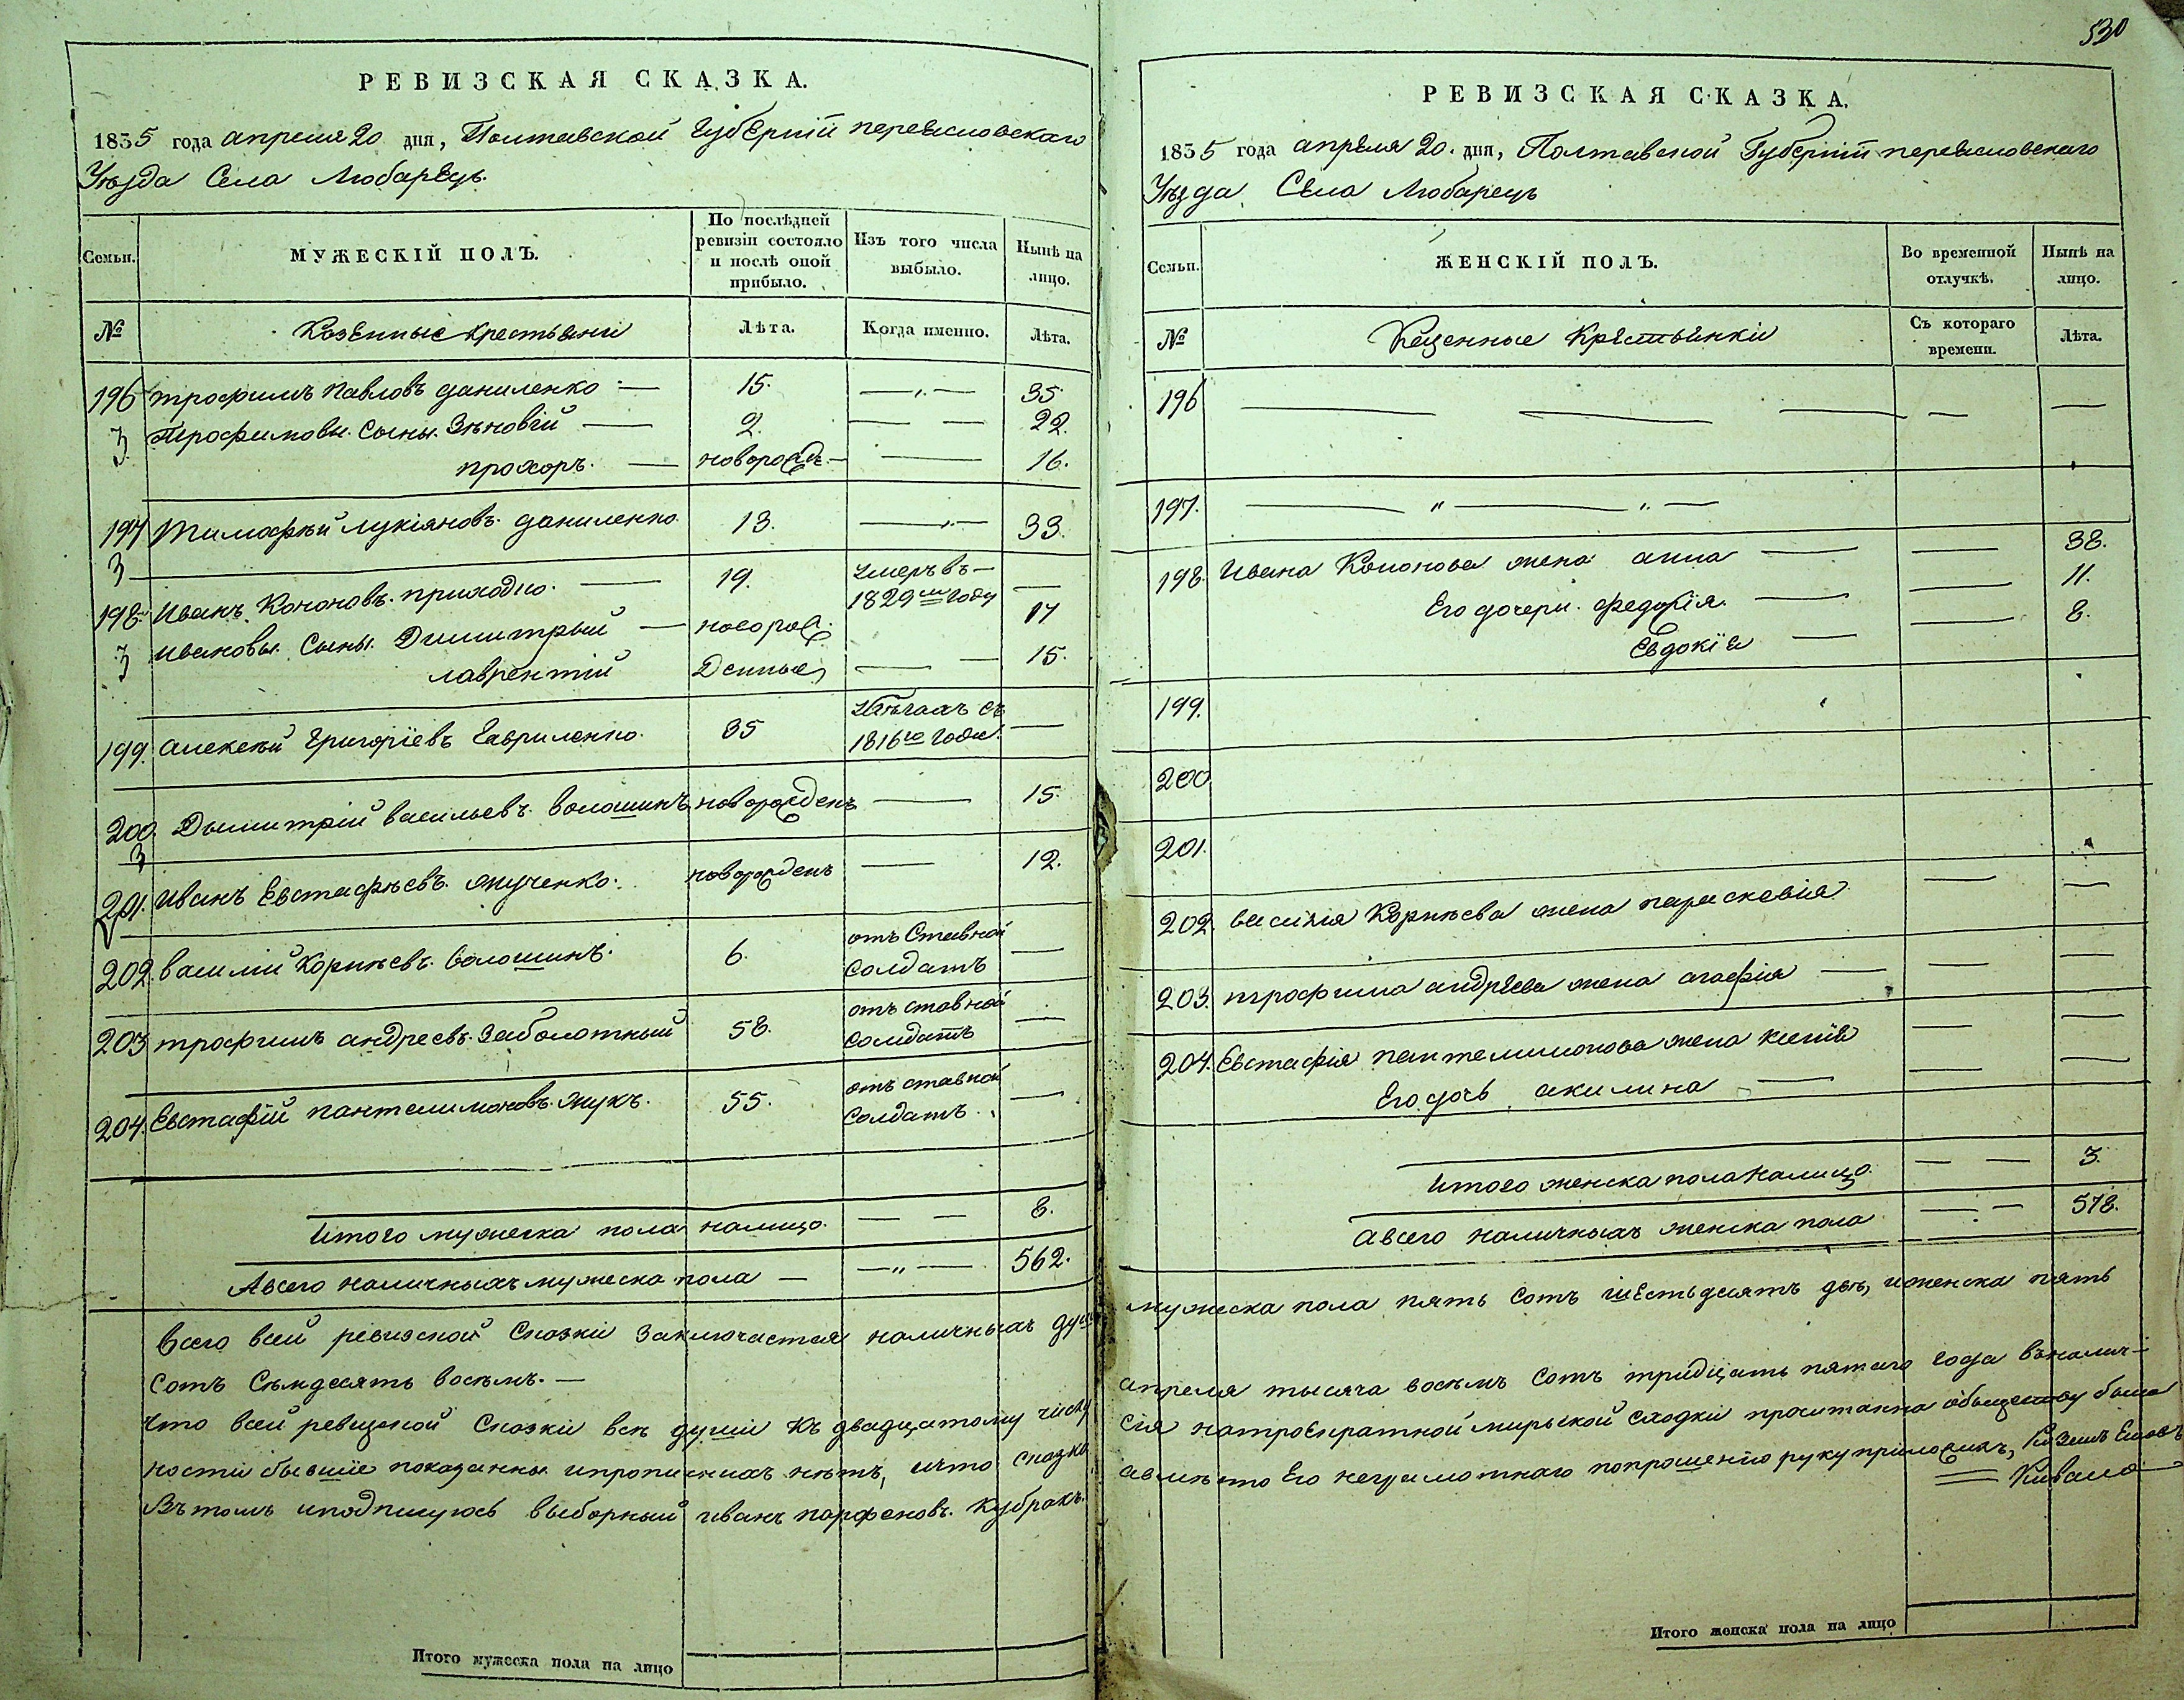 530
РЕВИЗСКАЯ СКАЗКА.
1835 года апреля 20 дня, Полтавской Губернiи переясловскаго
Уѣзда Села Любарець.
Семьи.
МУЖЕСКІЙ ПОЛЪ.
По послѣдней ревизіи состояло и послѣ оной прибыло.
Изъ того числа выбыло.
Нынѣ на лицо.
№
Козенные крестьяни
Лѣта.
Когда именно.
Лѣта.
196 трофимъ Павловъ даниленко — 15. — 35
3 Трофимовы Сыны Зѣновій — 2. — — 22.
прохоръ. — новорожд. — — 16.
197 Тимофѣй лукіяновъ даниленко 13. — 33.
3
198 Иванъ Кононовъ приходко. — 19. умеръ въ 1829м году —
3 Ивановы Сыны Димитрый — новорож. 17
лаврентій денные — — 15.
199. алексѣй Григоріевъ Гавриленко. 35 въ бѣгахъ съ 1816го Года. —
200. Дымитрій васильевъ волошинъ новорожденъ — 15
3
201. Иванъ Евстафѣевъ жученко. новорожденъ — 12.
202. василій Корнѣевъ волошинъ. 6. отъ Ставной Солдатъ —
203 трофимъ андреевъ Заболотный 58. отъ ставной Солдатъ —
204. Евстафій пантелимоновъ жукъ. 55. отъ ставной Солдатъ —
Итого мужеска пола налицо. — — 8.
Авсего наличныхъ мужеска пола — — 562.
Всего всей ревизской Сказкіи заключается наличныхъ душъ
Сотъ Сѣмдесять восѣмъ. —
Что всей ревизской Сказки всѣ душіи къ двадцатому числу
ности бывшіе показанны ипрописнихъ нѣтъ, ичто сказка
Въ томъ иподписуюсь выборный иванъ парфеновъ Кубракъ.
Итого мужеска пола на лицо
РЕВИЗСКАЯ СКАЗКА.
1835 года апреля 20. дня, Полтавской Губерніи переясловскаго
Уѣзда Села Любарець
Семьи.
ЖЕНСКІЙ ПОЛЪ.
Во временной отлучкѣ.
Нынѣ на лицо.
№
Казенные Крестьянкіи
Съ котораго времени.
Лѣта.
196 — — — — —
197. — " — " —
198. Ивана Кононова жена анна — — 38.
Его дочери федосія. — — 11.
Евдокія — — 8.
199.
200
201.
202. василія Корнѣева жена парасковія. — —
203. трофима андреева жена агафія — — —
204. Евстафія пантелимонова жена ксенія — —
Его дочь акилина — — —
Итого женска пола налицо. — — 3.
авсего наличныхъ женска пола — — 578.
мужеска пола пять сотъ шестьдесять двѣ, иженска пять
апреля тысяча восѣмъ сотъ тридцать пятаго года въналич-
сія натроекратной мирской сходкіи прочитанна обществу была
авмѣсто Его неграмотнаго попрошенію руку приложилъ,
Итого женска пола на лицо